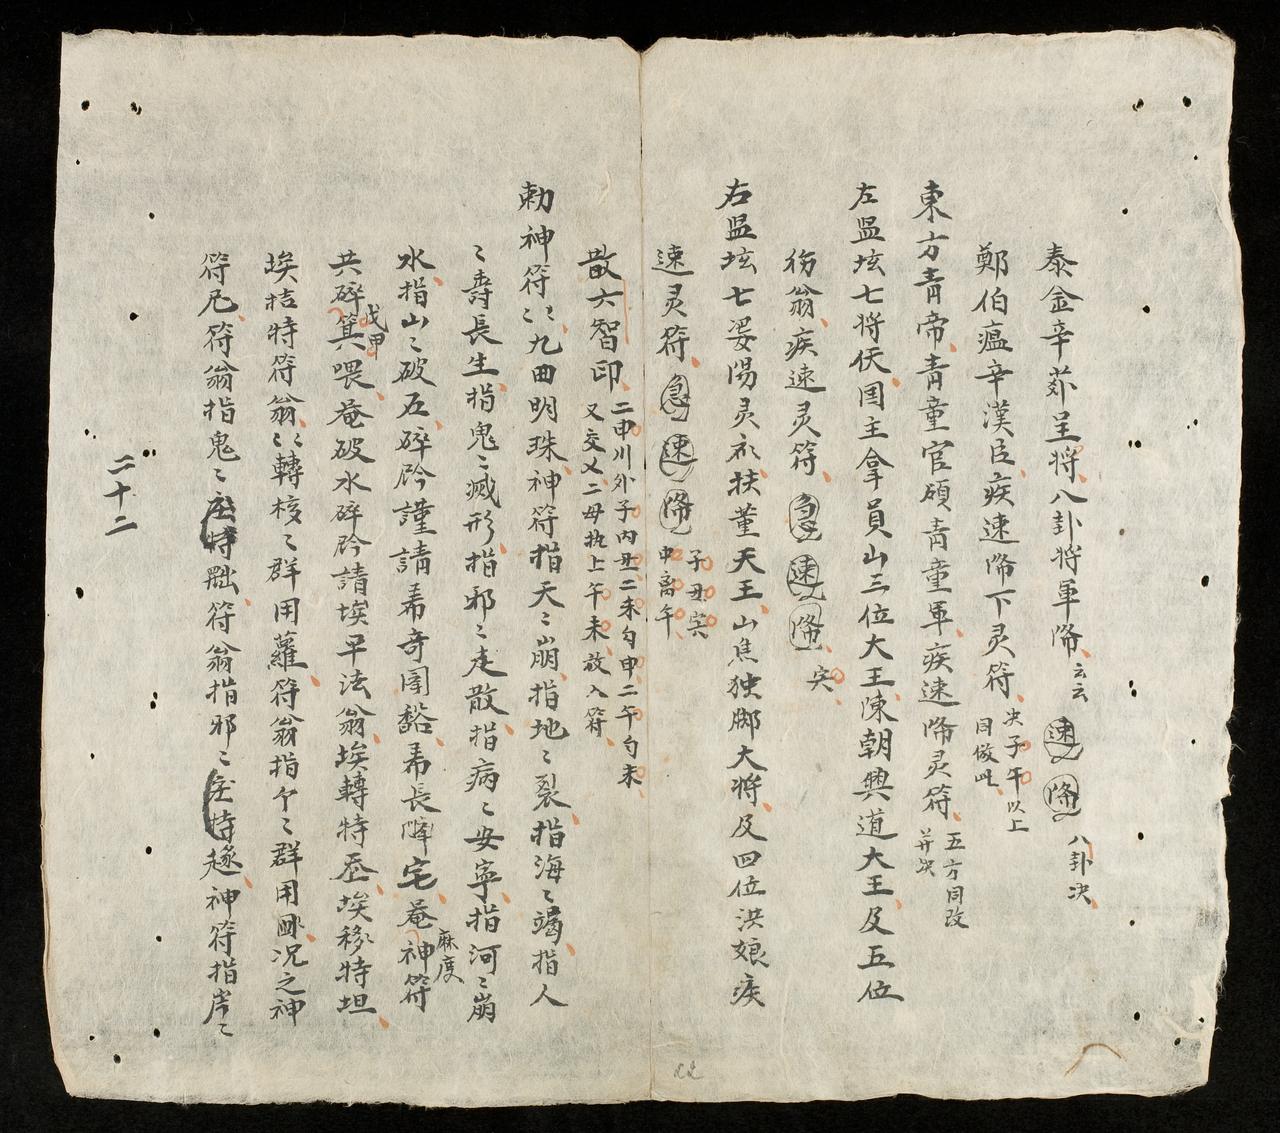 泰金辛茆呈将八卦将軍降云云速降八卦决
鄭伯瘟辛漢臣疾速降下灵符决子午以上同倣此
東方青帝青童官碩青童軍疾速降灵符五方同改并决
左㿽坛七将仸国主拿員山三位大王陳朝興道大王及五位
伤翁疾速灵符急速降寅
右㿽坛七妥陽灵𥘶扶董天王山焦独脚大将及四位洪娘疾
速灵符急速降子丑寅中离午
散六智印二申川外子内丑二未勾申二午勾未
又交乂二毋执上午未放入符
勅神符〻九曲明珠神符指天〻崩指地〻裂指海〻竭指人
〻壽長生指鬼〻滅形指邪〻走散指病〻安寧指河〻崩
水指山〻破石碎矜謹請希奇閣谿希長降宅菴神符麻度
共碎箕喂菴破水碎矜請埃早法翁埃轉特丕埃移特坦
戊甲
埃拮特符翁〻轉核〻群用蘿符翁指个〻群用𠚢况之神
符尼符翁指鬼〻特𦋦符翁指邪〻特趂神符指岸〻
二十二
22